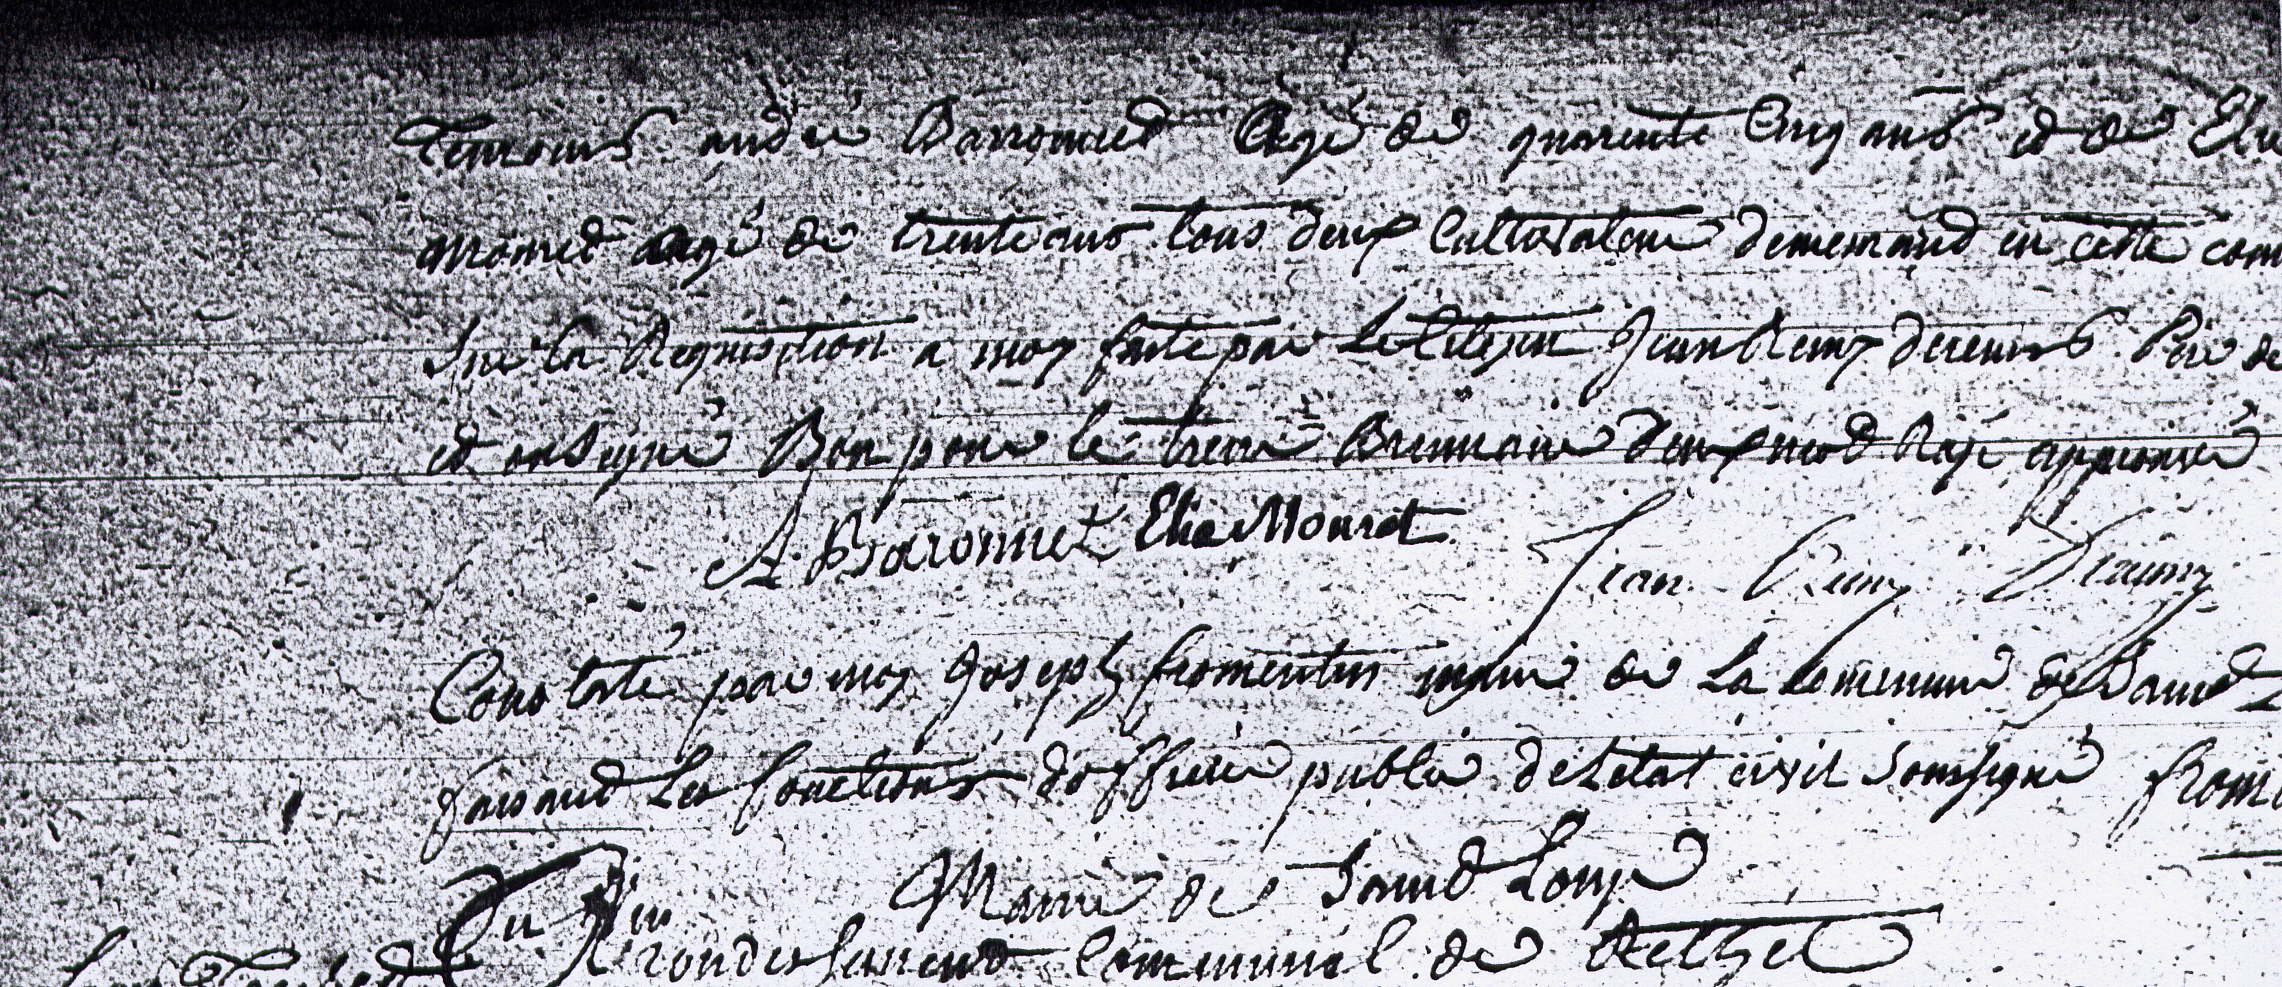 Temoins andré Baronnet agé de quarente Cinq ans et de Elie
Mouret agé de trente ans tous deux Cultivateur demeurand en cette com
Sur la Requisition a moy faite par le Citoyen Jean Remy Père de
et ont signé Bon pour le treize Brumaire deux mod Rajé approuvé
A Baronnet Elie Mouret
Jean Remy
Constaté par moy Joseph fromentin maire de La Commune de Saind
faisand Les fonctions d'officier public de Letat civil Soussigné from
Maire de Saind Loup
Du
Rondissement Communal de Rethel